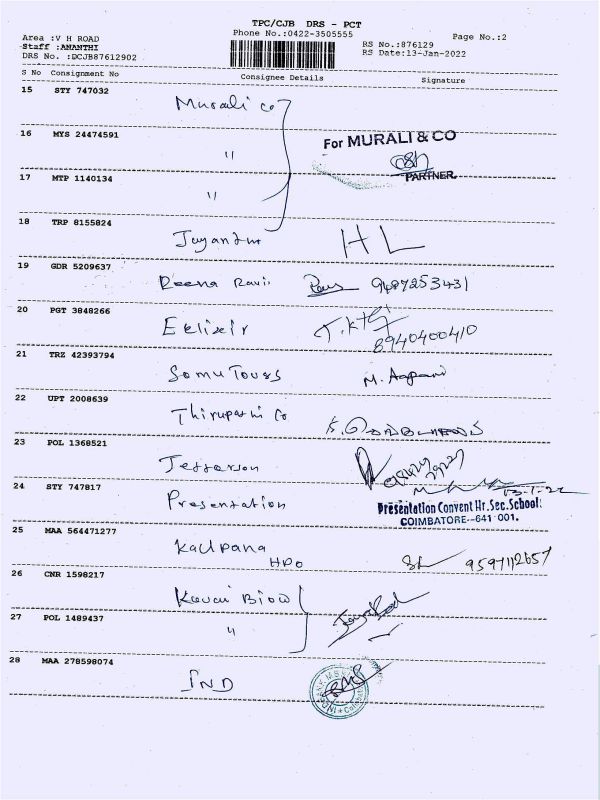 TPC/CJB DRS - PCT
Area :V H ROAD Phone No.:0422-3505555 Page No.:2
Staff :ANANTHI RS No.:876129
DRS No. :DCJB87612902 RS Date:13-Jan-2022
S No Consignment No Consignee Details Signature
15 STY 747032 Murali co
16 MYS 24474591 " For MURALI & CO
PARTNER.
17 MTP 1140134 "
18 TRP 8155824 Jayanthi H L
19 GDR 5209637 Reena Ravi
20 PGT 3848266 Eelixir T.K
8940400410
21 TRZ 42393794 Somu Tours M.
22 UPT 2008639 Thirupathi Co
23 POL 1368521 Jefferson
24 STY 747817 Presentation
Presentation Convent Hr.Sec.School.
COIMBATORE--641 001.
25 MAA 564471277 Kalpana
HPO 9597112657
26 CNR 1598217 Kovai
27 POL 1489437 "
28 MAA 278598074 IND